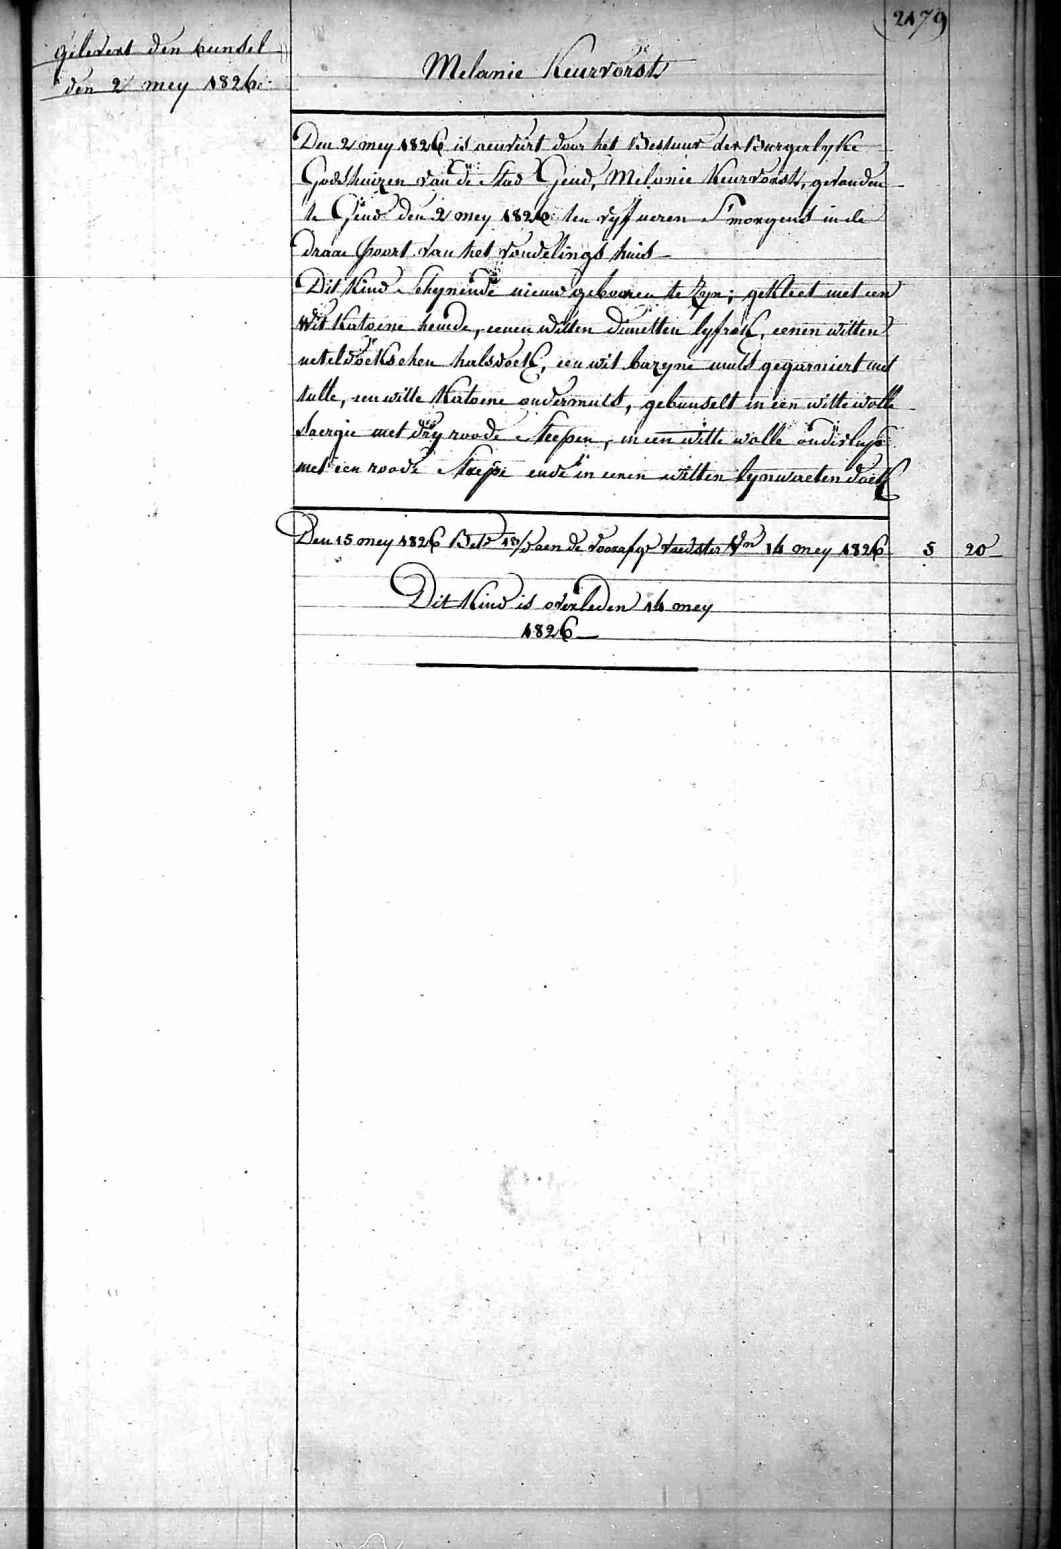 2179
Gelevert den bunsel
den 2 mey 1826.
Melanie Keurvorst
Den 2 mey 1826 is aenveirt door het Bestuur der Burgerlyke
Godshuizen van de Stad Gend, Melanie Keurvorst, gevonden
te Gend den 2 mey 1826 ten vyf ueren S'morgens in de
draaepoort van het vondelings huis
Dit Kind Schynende nieuw gebooren te Zyn; gekleet met een
wit Katoene hemde, eenen witten dimetten lyfrok, eenen witten
neteldoekschen halsdoek, een wit bazyne muts gegarniert met
tulle, een witte Katoene ondermuts, gebunselt in een witte wolle
Saergie met dry roode Streepen, in een witte wolle
met een roode Streepe ende in eenen witten lynwaeten doek
Den 15 mey 1826 aen de voedster 14 mey 1826 5 20
Dit Kind is overleden 14 mey
1826